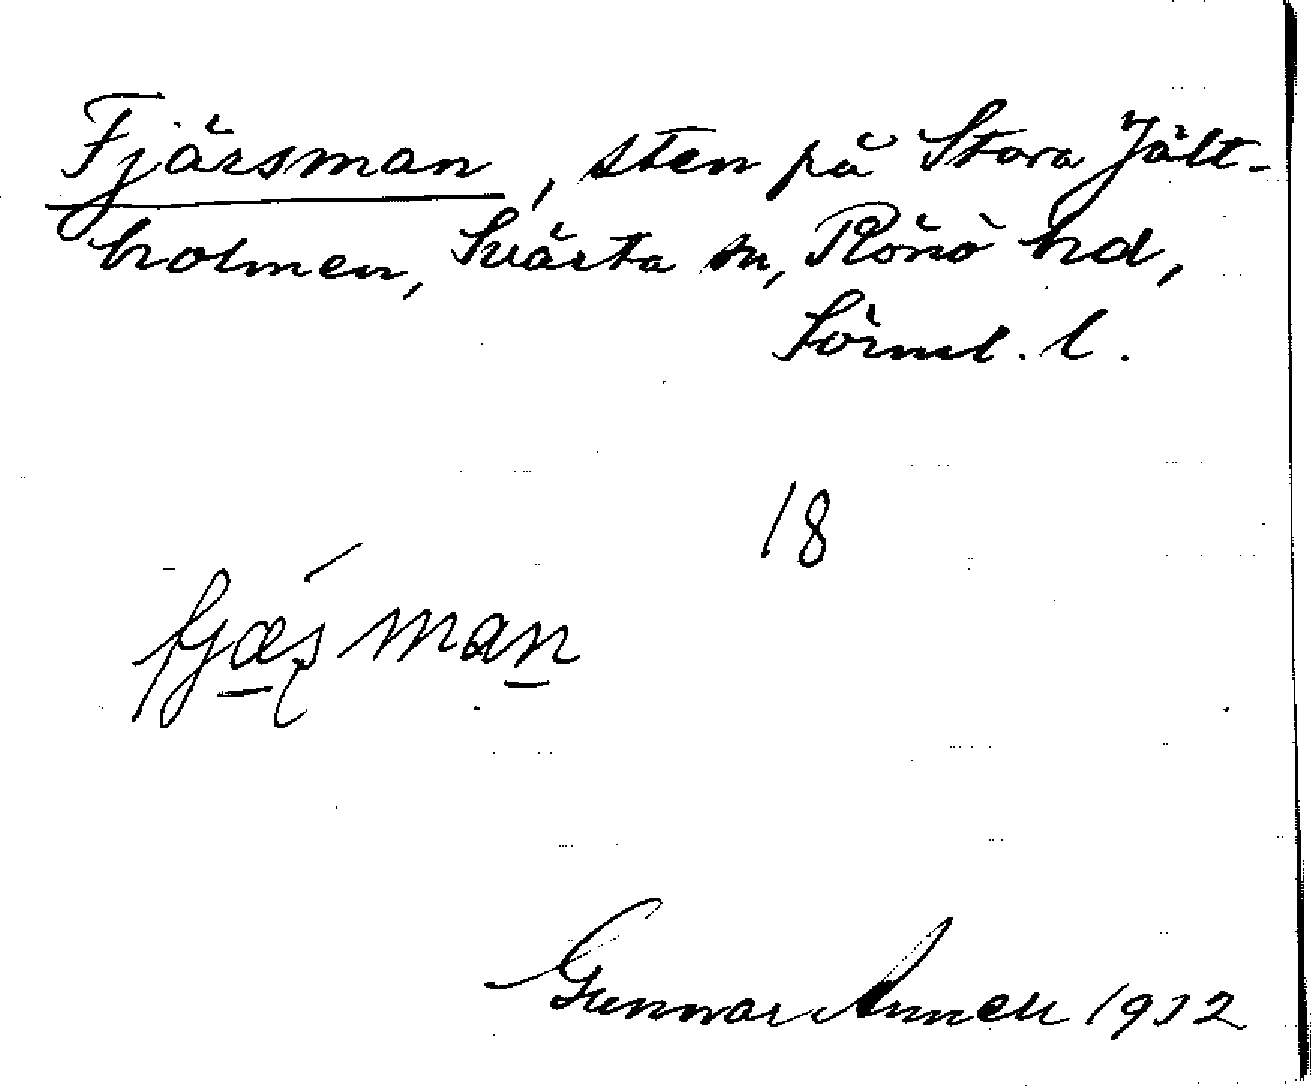 Fjärsman, sten på Stora Jält-
holmen, Svärta sn, Rönö hd,
Sörml. l.
18
fjæșman
Gunnar Annell 1932